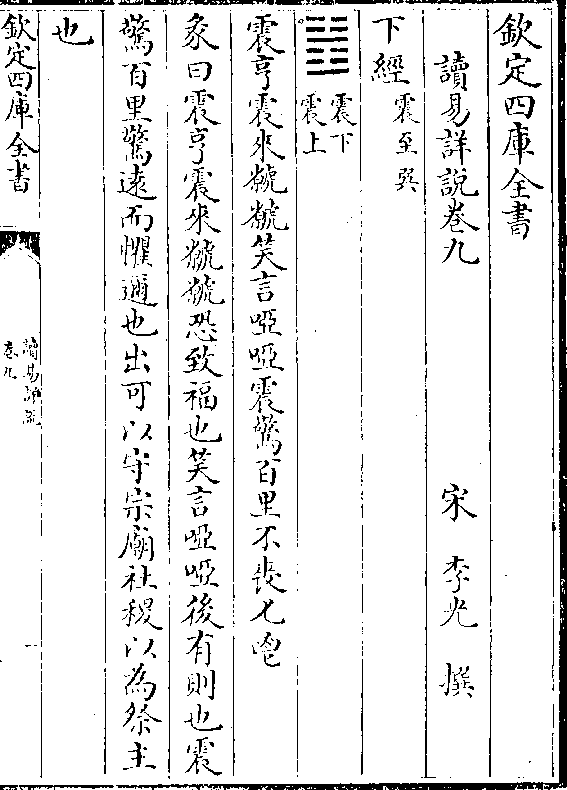 欽定四庫全書
讀易詳說卷九
宋 李光 撰
下經 震至巽
䷲ 震下
震上
震亨震來虩虩笑言啞啞震驚百里不喪匕鬯
彖曰震亨震來虩虩恐致福也笑言啞啞後有則也震
驚百里驚遠而懼邇也出可以守宗廟社稷以為祭主
也
欽定四庫全書
讀易詳說
卷九
一